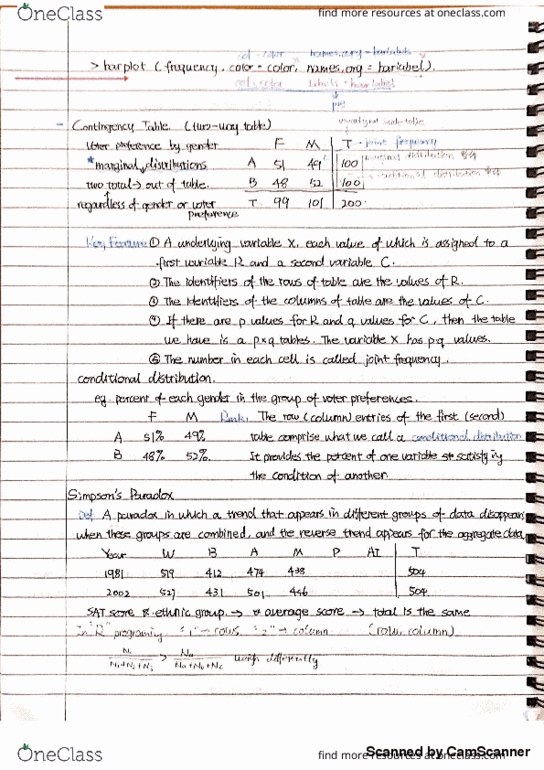 OneClass
find more resources at oneclass.com
col = color names.arg = barlabels
> barplot (frequency, color = color, names.org = barlabel).
pie
- Contingency Table. (two-way table)
Voter preference by gender F M T - joint frequency
*marginal distributions A 51 49 100
two total → out of table. B 48 52 100
regardless of gender or voter preference T 99 101 200
Key Feature: ① A underlying variable X, each value of which is assigned to a
first variable R and a second variable C.
② The identifiers of the rows of table are the values of R.
③ The identifiers of the columns of table are the values of C.
④ If there are p values for R and q values for C, then the table
we have is a p×q tables. The variable X has p×q values.
⑤ The number in each cell is called joint frequency.
conditional distribution.
eg. percent of each gender in the group of voter preferences.
F M Rmk. The row (column) entries of the first (second)
A 51% 49% table comprise what we call a conditional distribution
B 48% 52% It provides the percent of one variable satisfying
the condition of another.
Simpson's Paradox
Def. A paradox in which a trend that appears in different groups of data disappears
when these groups are combined, and the reverse trend appears for the aggregate data.
Year W B A M P AI T
1981 519 412 474 438 504
2002 527 431 501 446 504
SAT score & ethnic group → average score → total is the same
In "R" programing "1" → rows, "2" → column (row, column)
weigh differently
OneClass
find more resources at oneclass.com
Scanned by CamScanner